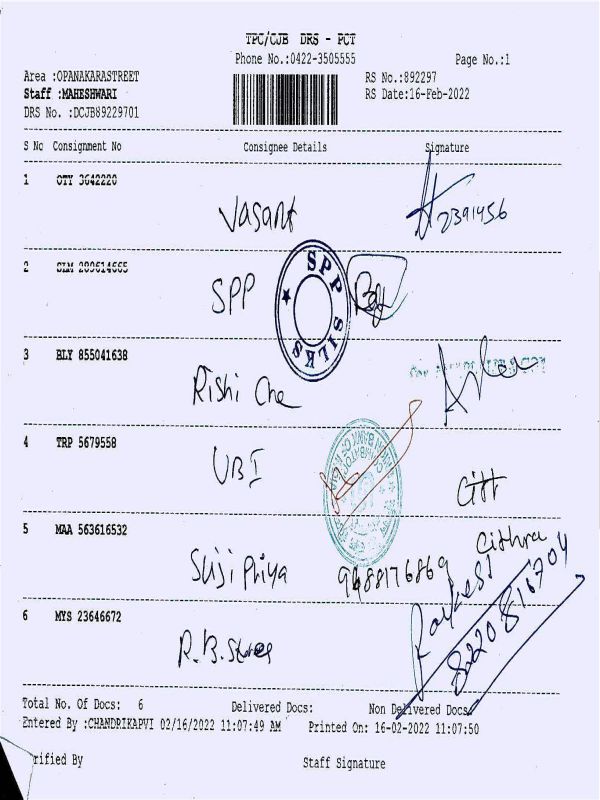 TPC/CJB DRS - PCT
Phone No.:0422-3505555 Page No.:1
Area :OPANAKARASTREET RS No.:892297
Staff :MAHESHWARI RS Date:16-Feb-2022
DRS No. :DCJB89229701
S No Consignment No Consignee Details Signature
1 OTY 3642220
Vasant 2391456
2 SLM 289614665
SPP SPP SILKS
3 BLY 855041638
Rishi Che
4 TRP 5679558
UBI
Citt
5 MAA 563616532
Cithra
Suji Phiya 9688176869
6 MYS 23646672
8220816704
R.B.
Total No. Of Docs: 6 Delivered Docs: Non Delivered Docs
Entered By :CHANDRIKAPVI 02/16/2022 11:07:49 AM Printed On: 16-02-2022 11:07:50
rified By Staff Signature